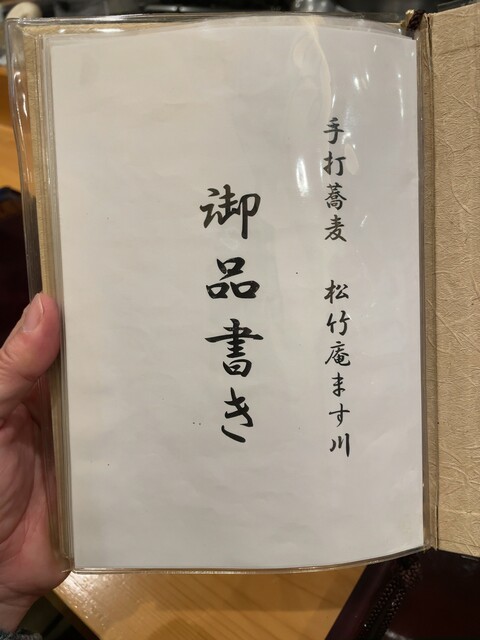 手打蕎麦 松竹庵ます川
御品書き